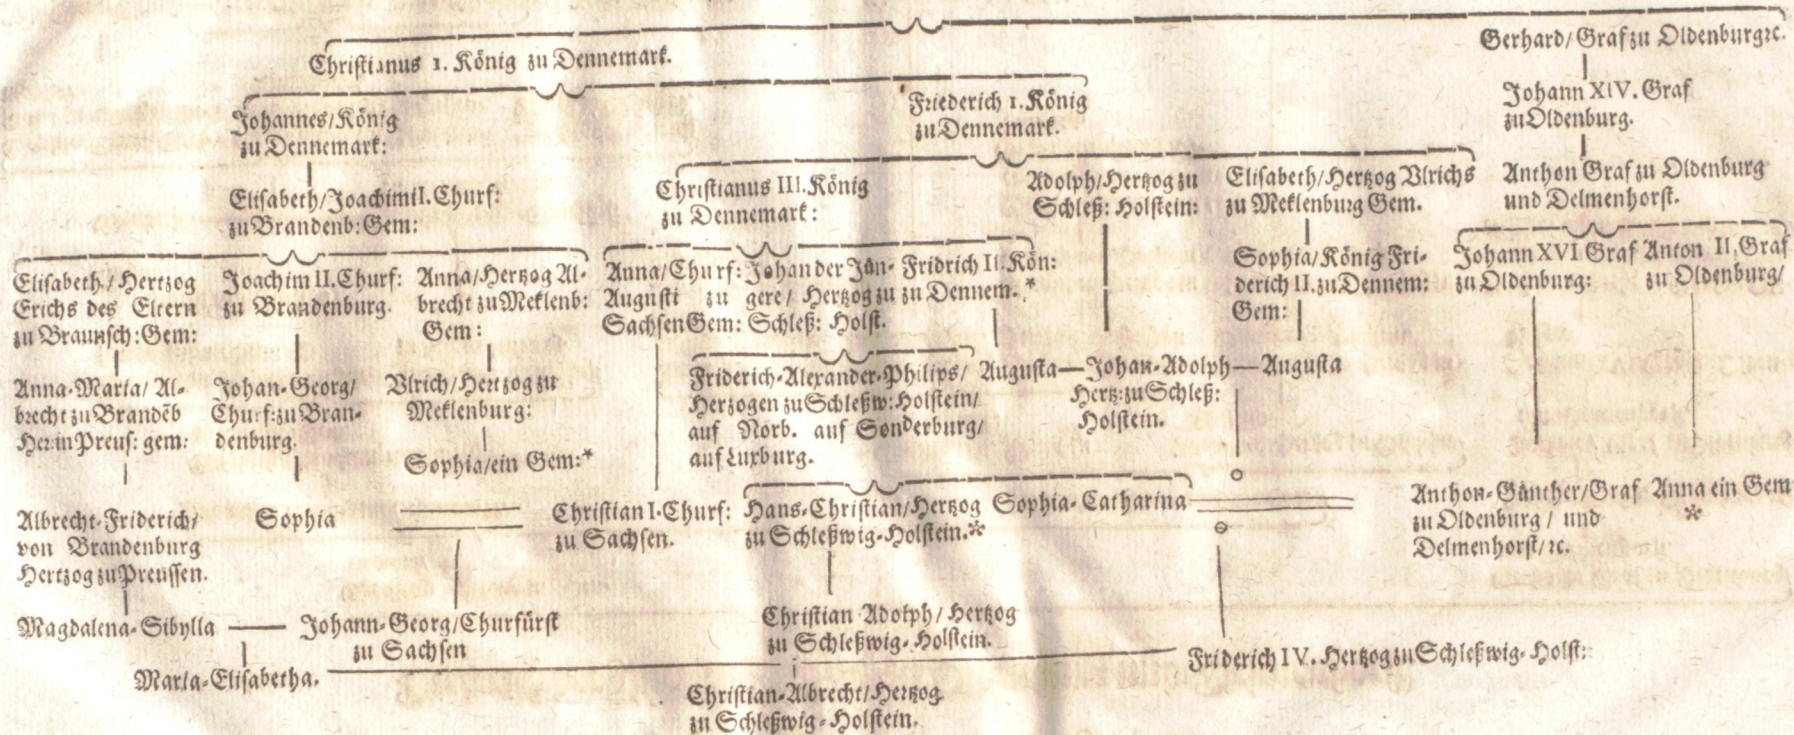 Christianus 1. König zu Dennemark.
Gerhard/ Graf zu Oldenburg ꝛc.
Johannes/König
zu Dennemark:
Friederich 1. König
zu Dennemark.
Johann XIV. Graf
zu Oldenburg.
Elisabeth/ Joachimi I. Churf:
zu Brandenb: Gem:
Christianus III. König
zu Dennemark:
Adolph/Hertzog zu
Schleß: Holstein:
Elisabeth/Hertzog Vlrichs
zu Meklenburg Gem.
Anthon Graf zu Oldenburg
und Delmenhorst.
Elisabeth / Hertzog
Erichs des Eltern
zu Braunsch: Gem:
Joachim II. Churf:
zu Brandenburg.
Anna/Hertzog Al-
brecht zu Meklenb:
Gem:
Anna/Churf:
Augusti zu
Sachsen Gem:
Johan der Jün-
gere/ Hertzog zu
Schleß: Holst.
Fridrich II. Kön:
zu Dennem.*
Sophia/König Fri-
derich II. zu Dennem:
Gem:
Johann XVI Graf
zu Oldenburg:
Anton II. Graf
zu Oldenburg/
Anna-Maria/ Al-
brecht zu Brandēb
Her: in Preus: gem:
Johan-Georg/
Churf: zu Bran-
denburg.
Vlrich/Hertzog zu
Meklenburg:
Friderich-Alexander-Philips/
Herzogen zu Schleßw: Holstein/
auf Norb. auf Sonderburg/
auf Luxburg.
Augusta—Johan-Adolph—Augusta
Hertz: zu Schleß:
Holstein.
Sophia/ein Gem:*
Albrecht-Friderich/
von Brandenburg
Hertzog zu Preussen.
Sophia
Christian I. Churf:
zu Sachsen.
Hans-Christian/Hertzog
zu Schleßwig-Holstein.*
Sophia-Catharina
Anthon-Günther/Graf
zu Oldenburg / und
Delmenhorst/ ꝛc.
Anna ein Gem
*
Magdalena-Sibylla
Johann-Georg/Churfürst
zu Sachsen
Christian Adolph/ Hertzog
zu Schleßwig-Holstein.
Maria-Elisabetha.
Friderich IV. Hertzog zu Schleßwig-Holst:
Christian-Albrecht/Hertzog
zu Schleßwig-Holstein.